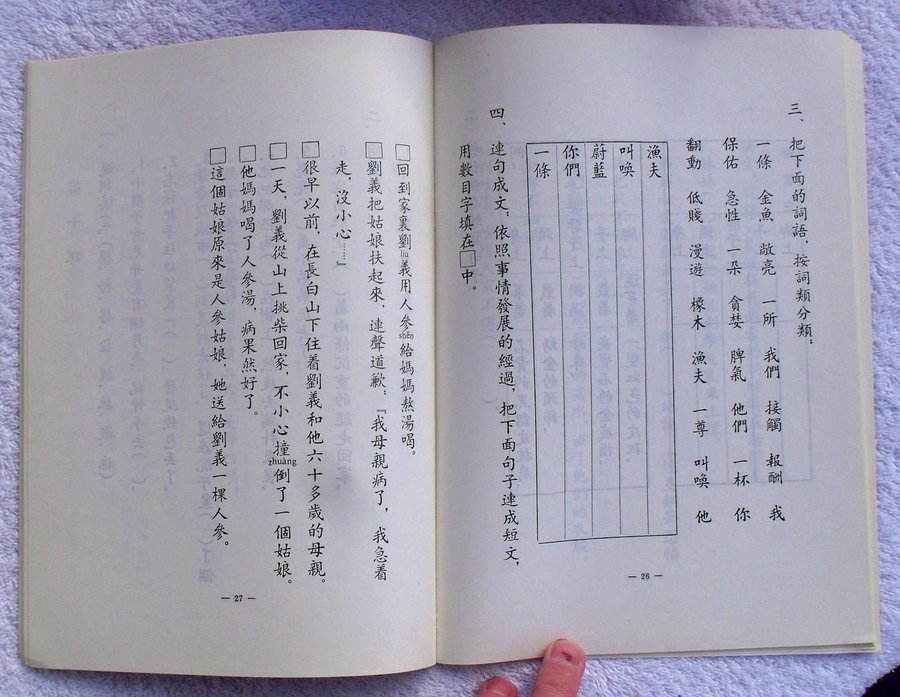 三、把下面的詞語，按詞類分類：
一條 金魚 敞亮 一所 我們 接觸 報酬 我
保佑 急性 一朵 貪婪 脾氣 他們 一杯 你
翻動 低賤 漫遊 橡木 漁夫 一尊 叫喚 他
漁夫
叫喚
蔚藍
你們
一條
四、連句成文：依照事情發展的經過，把下面句子連成短文，
用數目字填在□中。
— 26 —
□回到家裏劉義用人參shēn給媽媽熬湯喝。
□劉義把姑娘扶起來，連聲道歉：『我母親病了，我急着
走，沒小心……』
□很早以前，在長白山下住着劉義和他六十多歲的母親。
□一天，劉義從山上挑柴回家，不小心撞zhuàng倒了一個姑娘。
□他媽媽喝了人參湯，病果然好了。
□這個姑娘原來是人參姑娘，她送給劉義一棵人參。
— 27 —